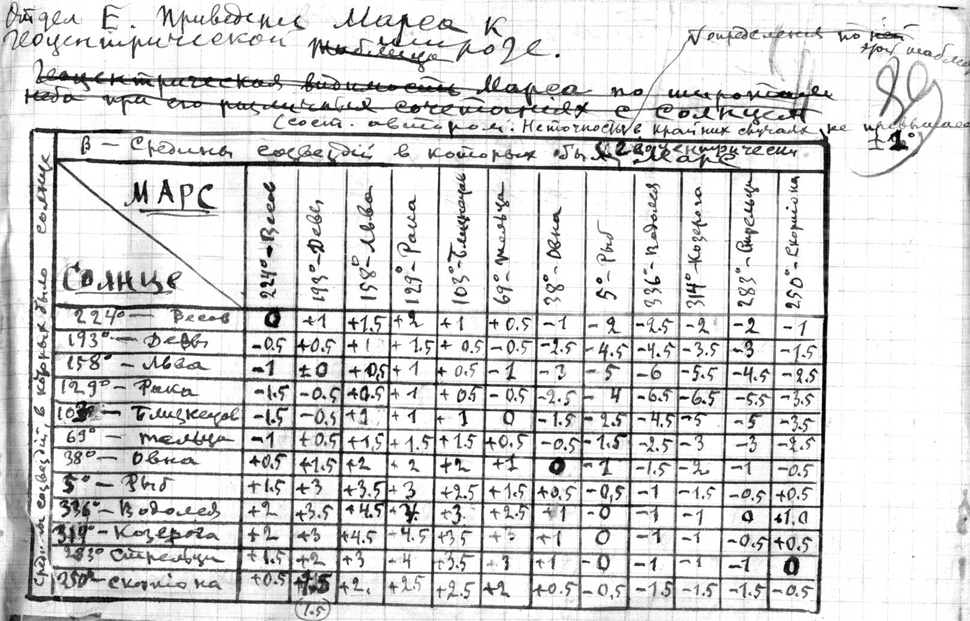 Отдел Е. Приведение Марса к
геоцентрической таблица широте.
Геоцентрическая видимость Марса по широтам
неба при его различных сочетаниях с солнцем
определения по ней
этой
(сост. автором. Неточность в крайних случаях не превышает
±1°)
89
В — Средины созвездий в которых был Марс
МАРС
Солнце
Средина созвездий, в которых было солнце
224° - Весов 193° - Девы 158° - Льва 129° - Рака 103° - Близнецов 69° - Тельца 38° - Овна 5° - Рыб 336° - Водолея 314° - Козерога 283° - Стрельца 250° - Скорпиона
224° — Весов 0 +1 +1.5 +2 +1 +0.5 -1 -2 -2.5 -2 -2 -1
193° — Девы -0.5 +0.5 +1 +1.5 +0.5 -0.5 -2.5 -4.5 -4.5 -3.5 -3 -1.5
158° — Льва -1 ±0 +0.5 +1 +0.5 -1 -3 -5 -6 -5.5 -4.5 -2.5
129° — Рака -1.5 -0.5 +0.5 +1 +0.5 -0.5 -2.5 -4 -6.5 -6.5 -5.5 -3.5
103° — Близнецов -1.5 -0.5 +1 +1 +1 0 -1.5 -2.5 -4.5 -5 -5 -3.5
69° — Тельца -1 +0.5 +1.5 +1.5 +1.5 +0.5 -0.5 -1.5 -2.5 -3 -3 -2.5
38° — Овна +0.5 +1.5 +2 +2 +2 +1 0 -1 -1.5 -2 -1 -0.5
5° — Рыб +1.5 +3 +3.5 +3 +2.5 +1.5 +0.5 -0,5 -1 -1.5 -0.5 +0.5
336° - Водолея +2 +3.5 +4.5 +3. +2.5 +1 -0 -1 -1 0 +1.0
314° - Козерога +2 +3 +4.5 -4.5 +3.5 +3 +1 0 -1 -1 -0.5 +0.5
283° Стрельца +1.5 +2 +3 -4 +3.5 +3 +1 -0 -1 -1 -1 0
250° - Скорпиона +0.5 +1.5 +2. +2.5 +2.5 +2 +0.5 -0.5 -1.5 -1.5 -1.5 -0.5
(1.5)